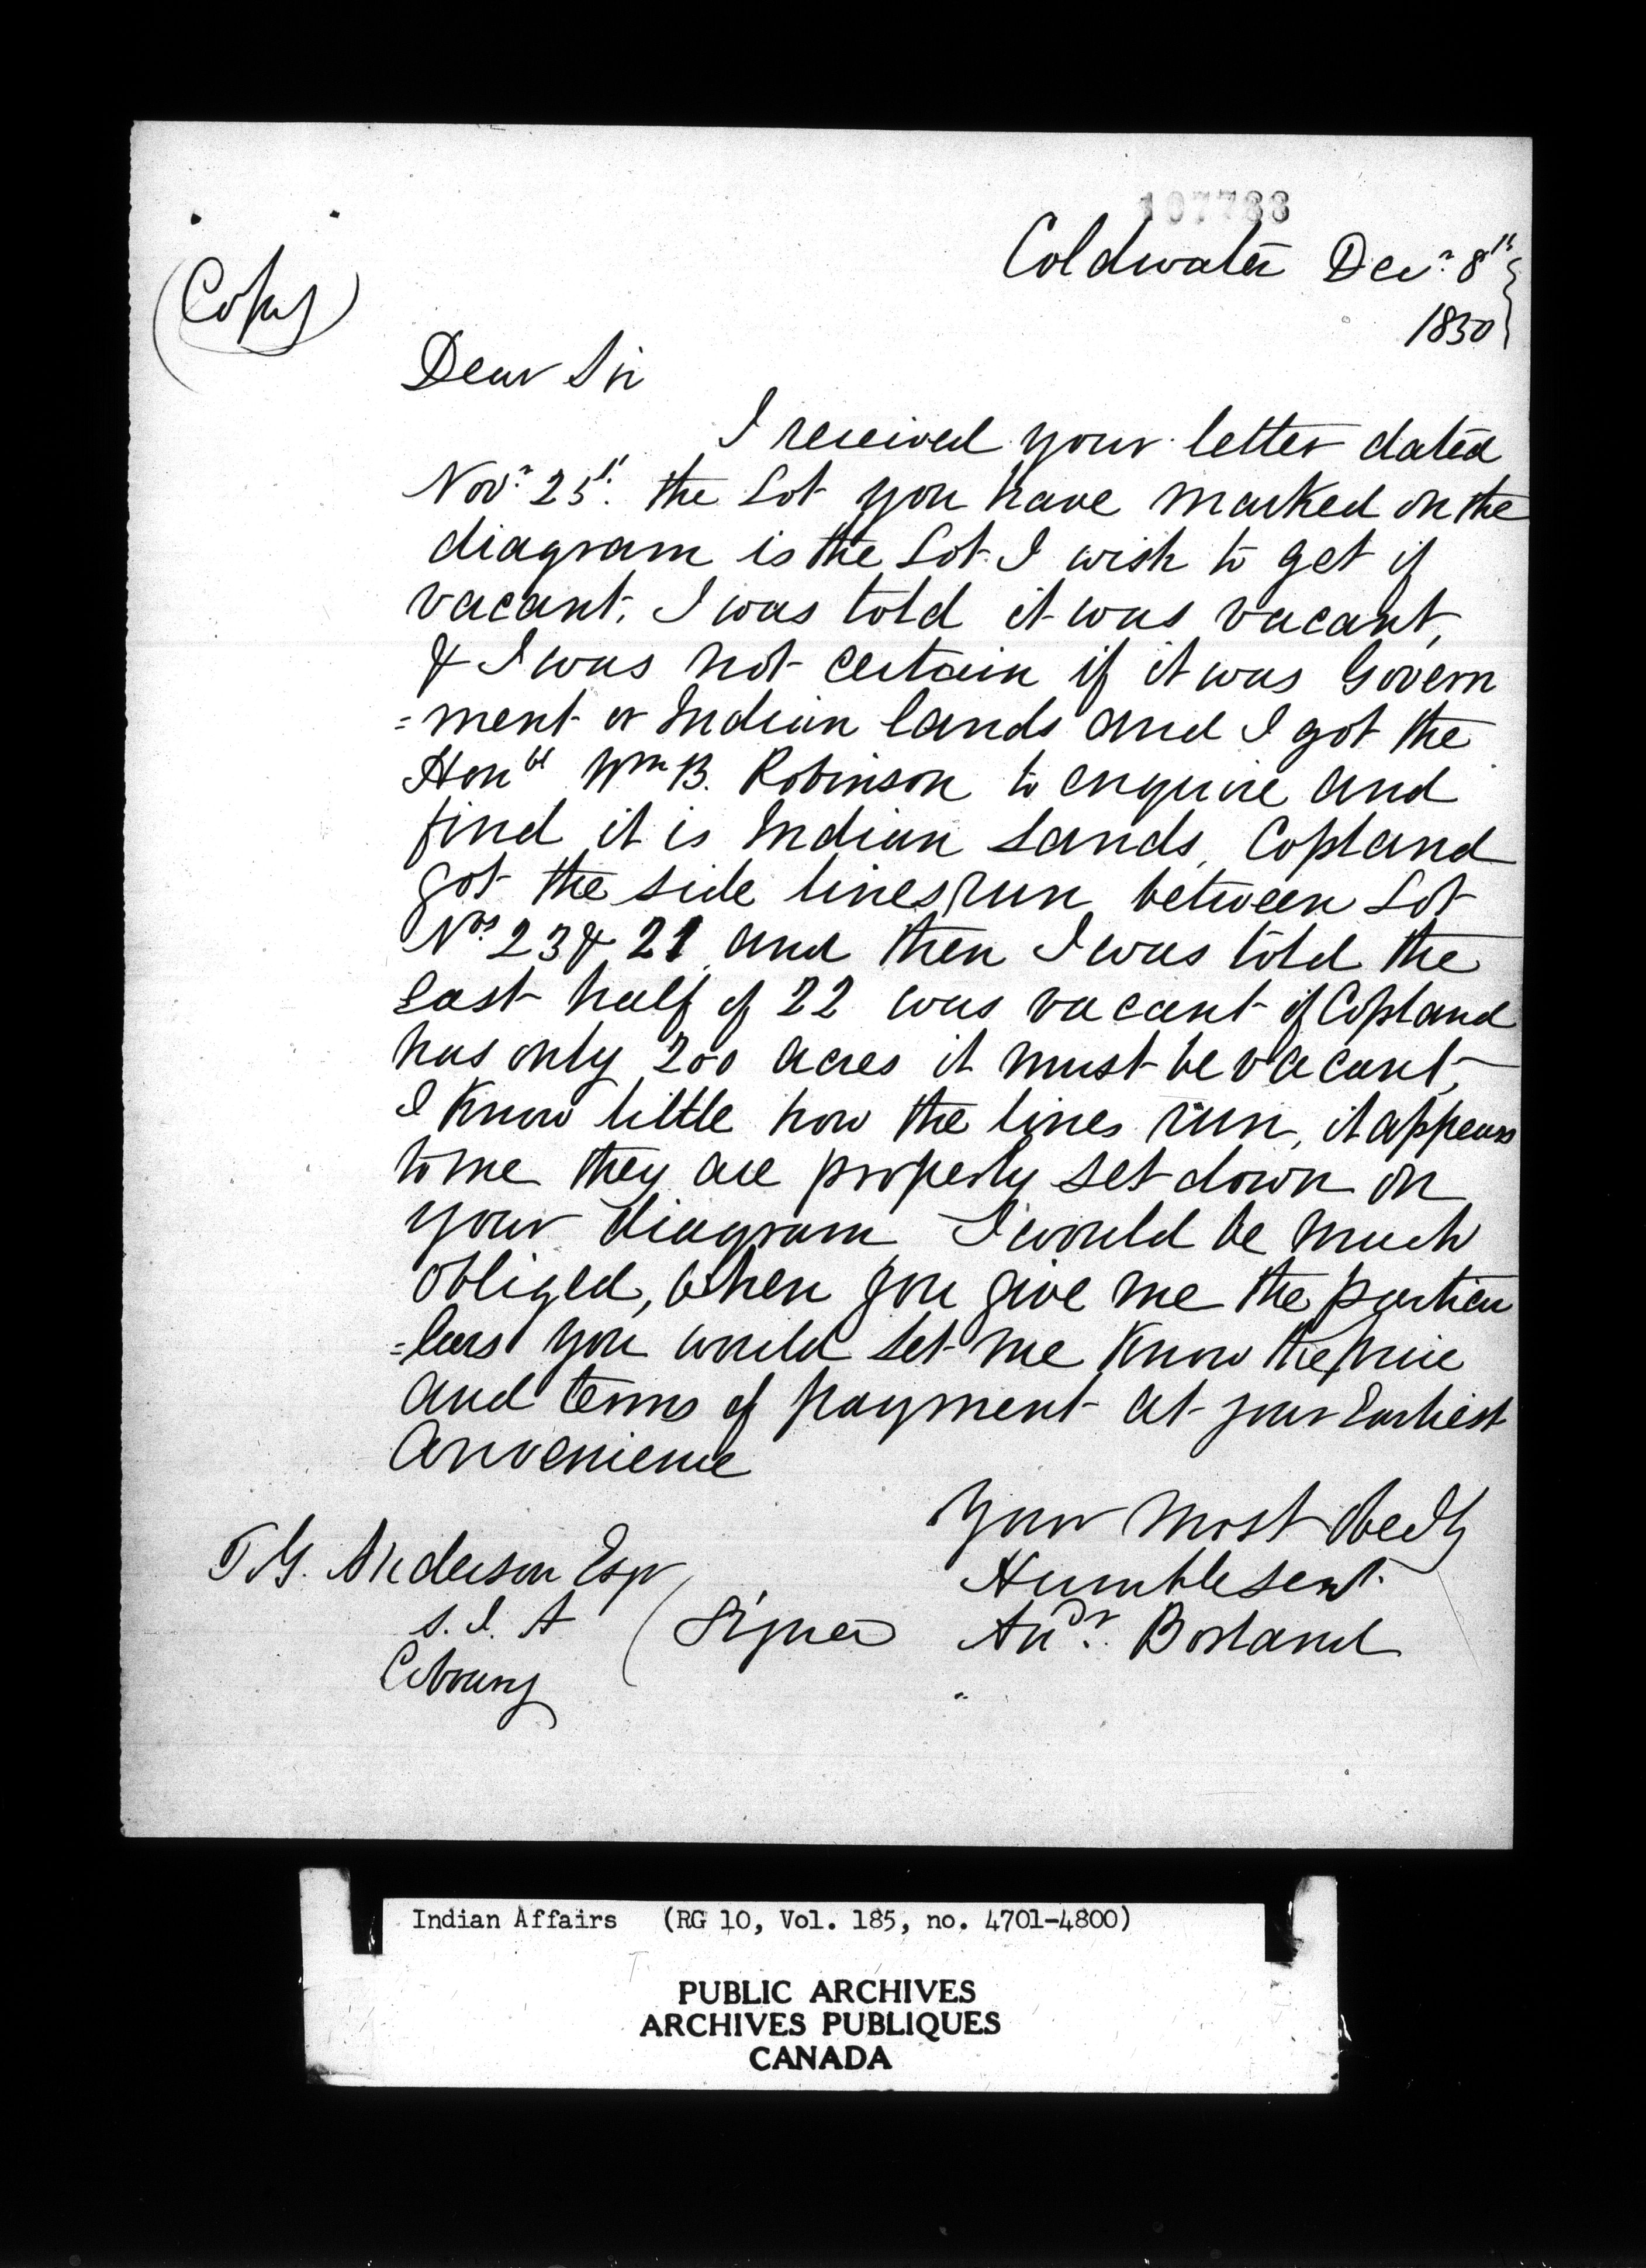 107788
(Copy)
Coldwater Decr. 8th
1850
Dear Sir
I received your letter dated
Novr. 25th. the Lot you have marked on the
diagram is the Lot I wish to get if
vacant. I was told it was vacant,
& I was not certain if it was Govern
=ment or Indian lands and I got the
Honbl Wm B. Robinson to enquire and
find it is Indian Lands, Copland
got the side lines run between Lot
Nos. 23 & 21, and then I was told the
East half of 22 was vacant if Copland
has only 200 acres it must be vacant,
I know little how the lines run, it appears
to me they are properly set down on
your diagram I would be much
obliged, when you give me the particu
=lars you would let me know the price
and terms of payment at your Earliest
Convenience
Your Most Obedt
Humble Servt.
(Signed Andr. Borland
T.G. Anderson Esqr
S. I. A
Cobourg
Indian Affairs (RG 10, Vol. 185, no. 4701-4800)
PUBLIC ARCHIVES
ARCHIVES PUBLIQUES
CANADA